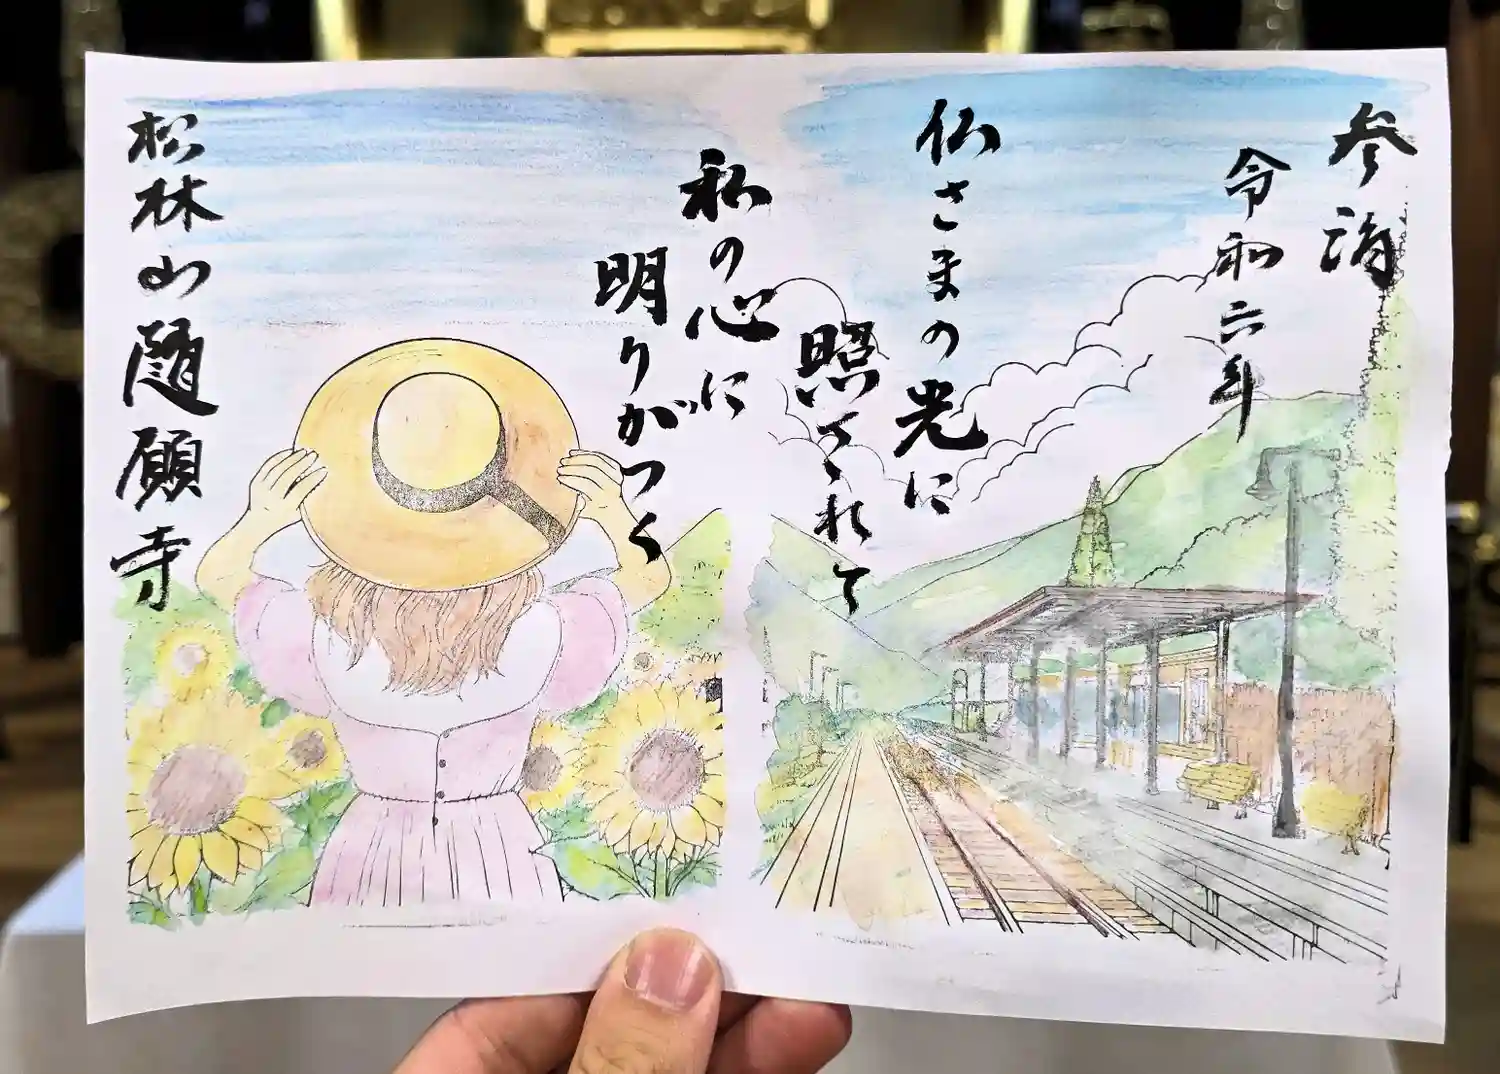 参詣
令和六年
仏さまの光に
照らされて
私の心に
明りがつく
松林山随願寺